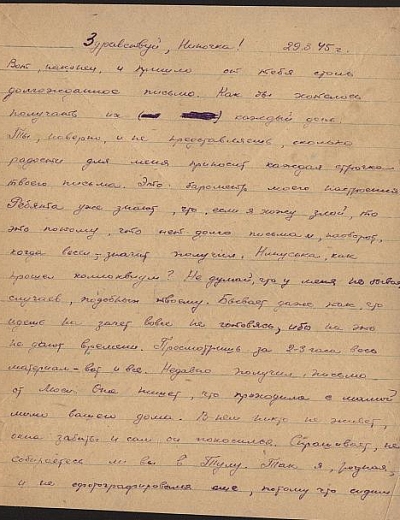 Здравствуй, Ниночка! 29.3.45 г.
Вот, наконец, и пришло от тебя столь
долгожданное письмо. Как бы хотелось
получать их ( ) каждый день.
Ты, наверно, и не представляешь, сколько
радости для меня приносит каждая строчка
твоего письма. Это барометр моего настроения
Ребята уже знают, что, если я хожу злой, то
это потому, что нет долго письма и, наоборот,
когда весел - значит получил. Нинуська, как
прошел коллоквиум? Не думай, что у меня не бывает
случаев, подобных твоему. Бывает даже так, что
на зачет вовсе не готовясь, ибо на это
не дают времени. Просмотришь за 2-3 часа весь
материал - вот и все. Недавно получил письмо
от Люси. Она пишет, что проходила с мамой
мимо вашего дома. В нем никто не живет,
окна забиты и сам он покосился. Спрашивает, не
собираетесь ли вы в Тулу. Так я, родная,
и не сфотографировался еще, потому что сидим